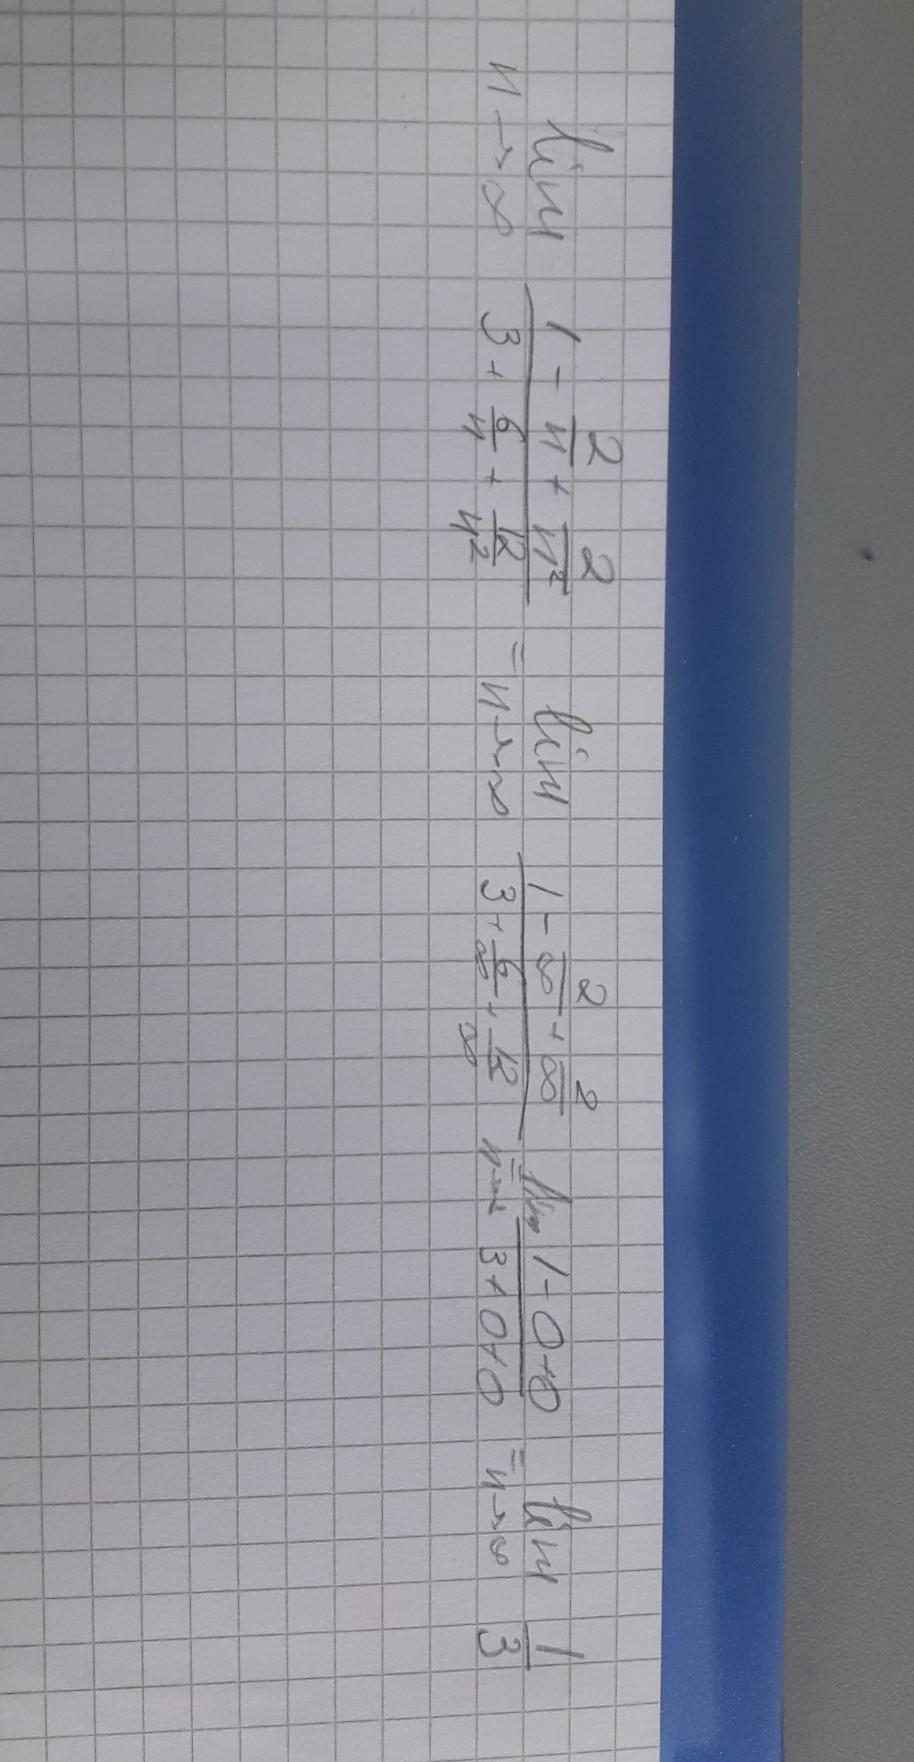 lim 1 - 2/n + 2/n² / 3 + 6/n + 12/n² = lim 1 - 2/∞ + 2/∞ / 3 + 6/∞ + 12/∞ = lim 1 - 0 + 0 / 3 + 0 + 0 = lim 1/3
n→∞ n→∞ n→∞ n→∞